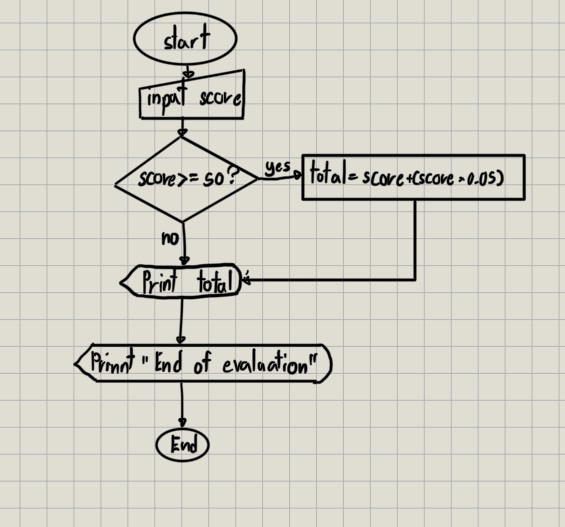 start
input score
score>= 50?
yes
total= score+(score*0.05)
no
Print total
Prinnt "End of evaluation"
End